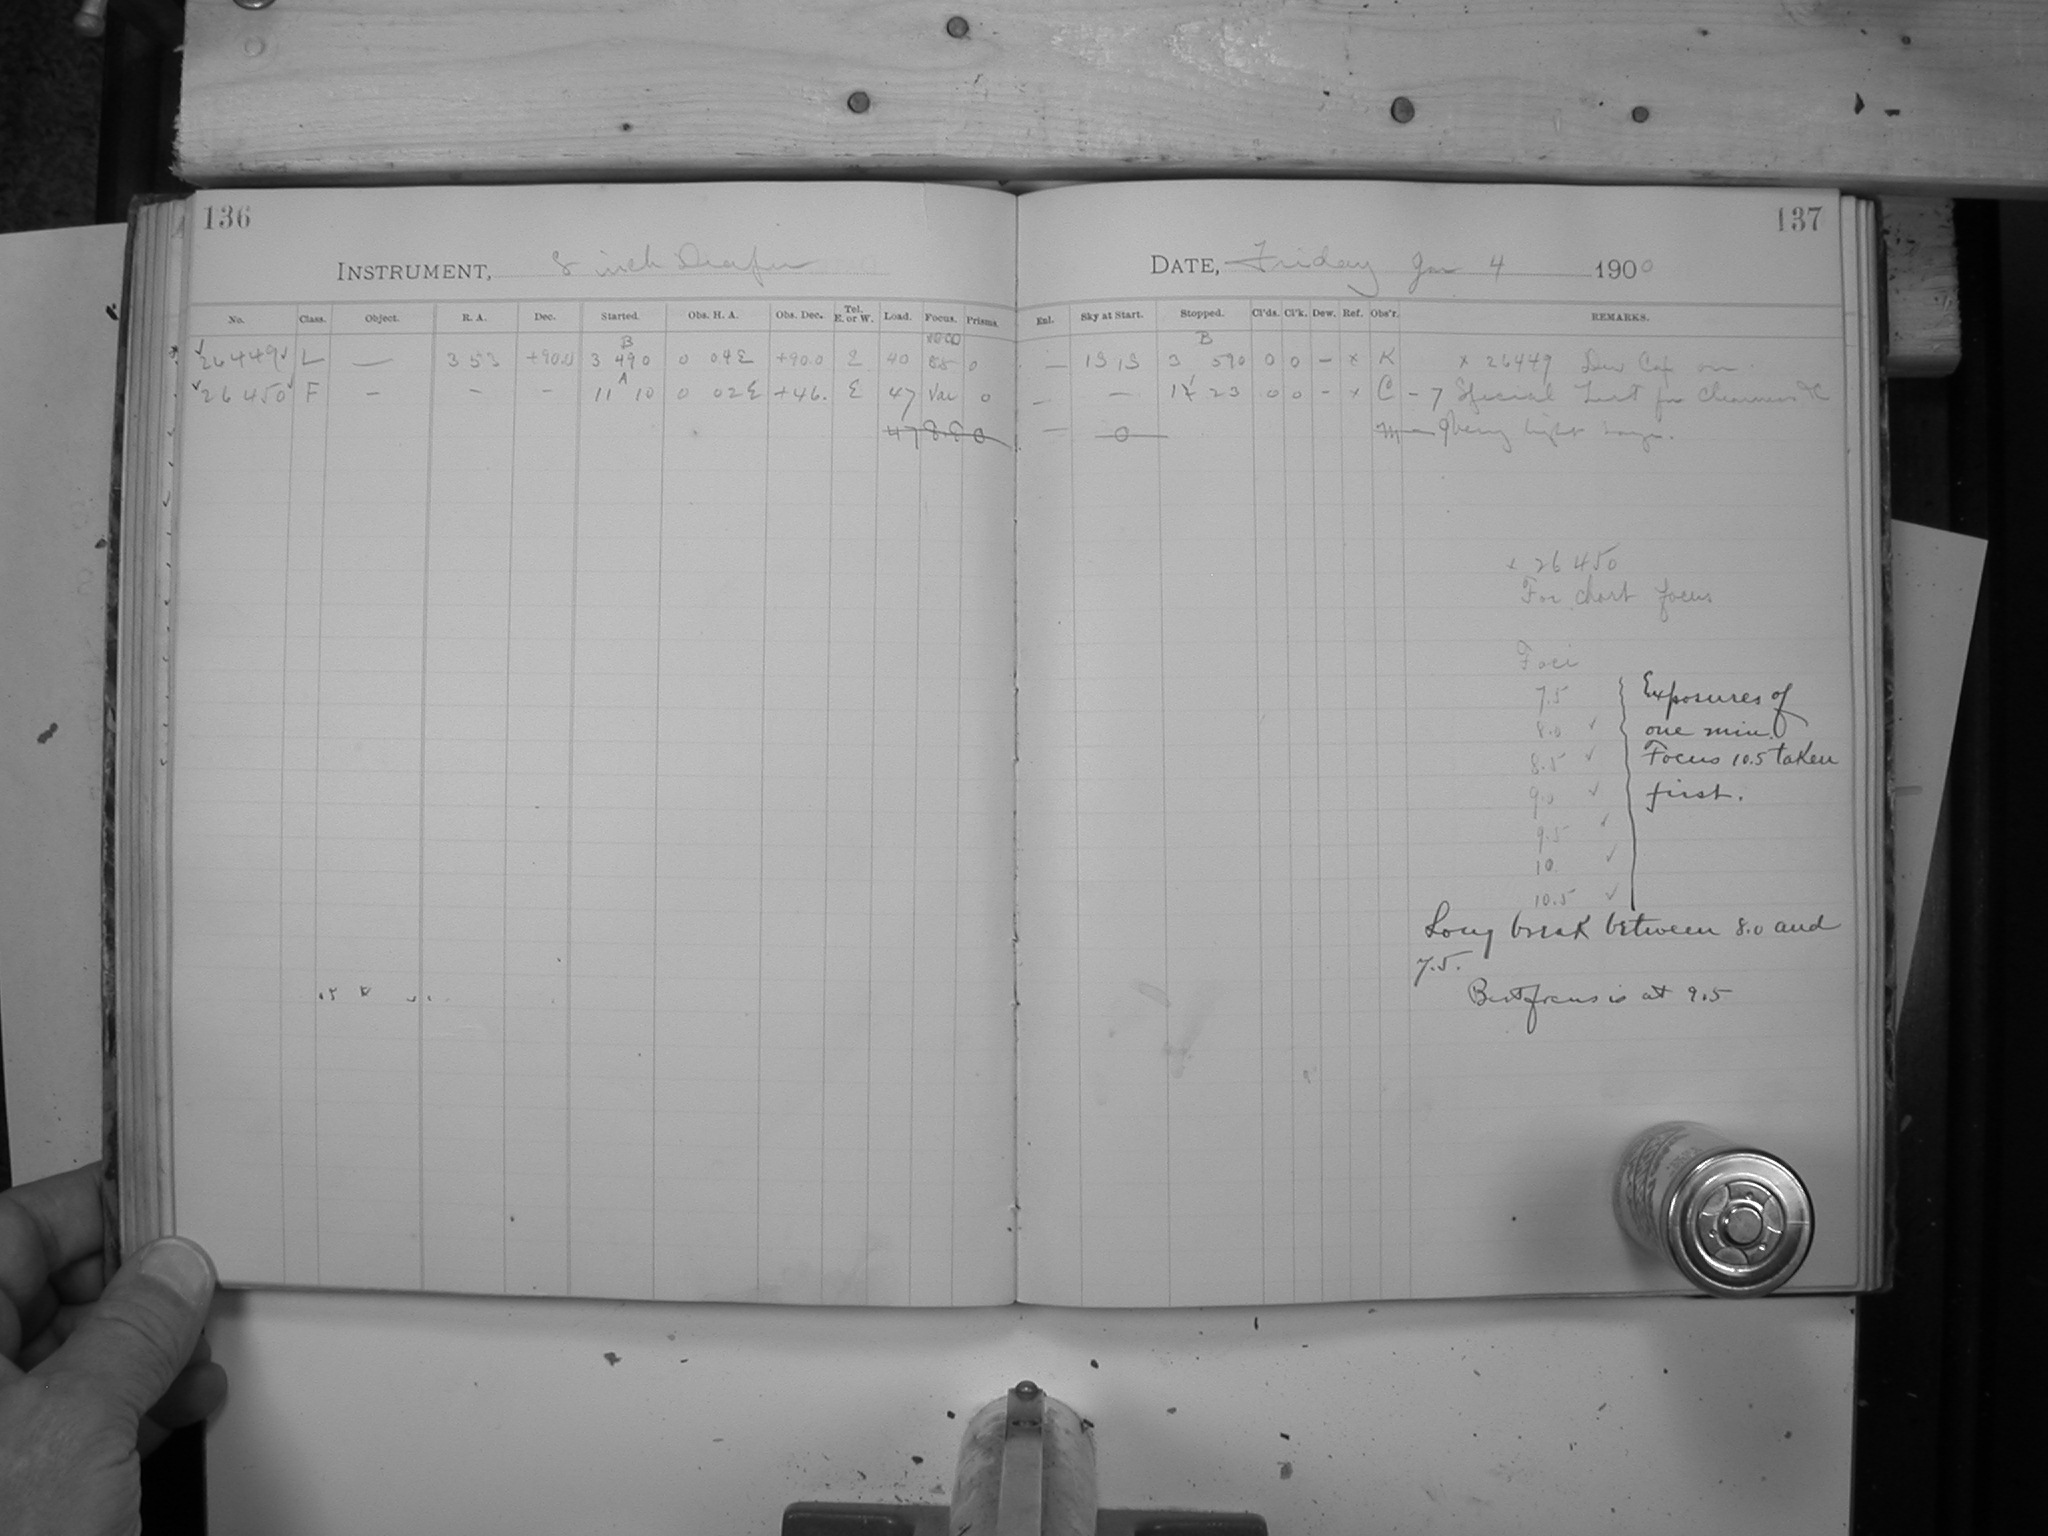 136
137
INSTRUMENT, 8 inch Draper
DATE, Friday Jan 4 1900
No. Class. Object. R. A. Dec. Started. Obs. H. A. Obs. Dec. Tel. E. or W. Load. Focus. Prisms.
Enl. Sky at Start. Stopped. Cl'ds. Cl'k. Dew. Ref. Obs'r. REMARKS.
B
26449 L — 3 53 +90.0 3 49 0 0 04E +90.0 E 40 8.5 0
B
— 13 13 3 59 0 0 0 – x K x 26449 Dew Cap on
A
26450 F – – – 11 10 0 02E +46. E 47 Var 0
— — 23 0 0 – x C – 7 Special Test for Clearness &c
47 8.8 0
— 0
x 26450
For chart focus
Foci
7.5
8.0 ✓
8.5 ✓
9.0 ✓
9.5 ✓
10. ✓
10.5 ✓
Exposures of
one min.
Focus 10.5 taken
first.
Long break between 8.0 and
7.5.
Best focus is at 9.5